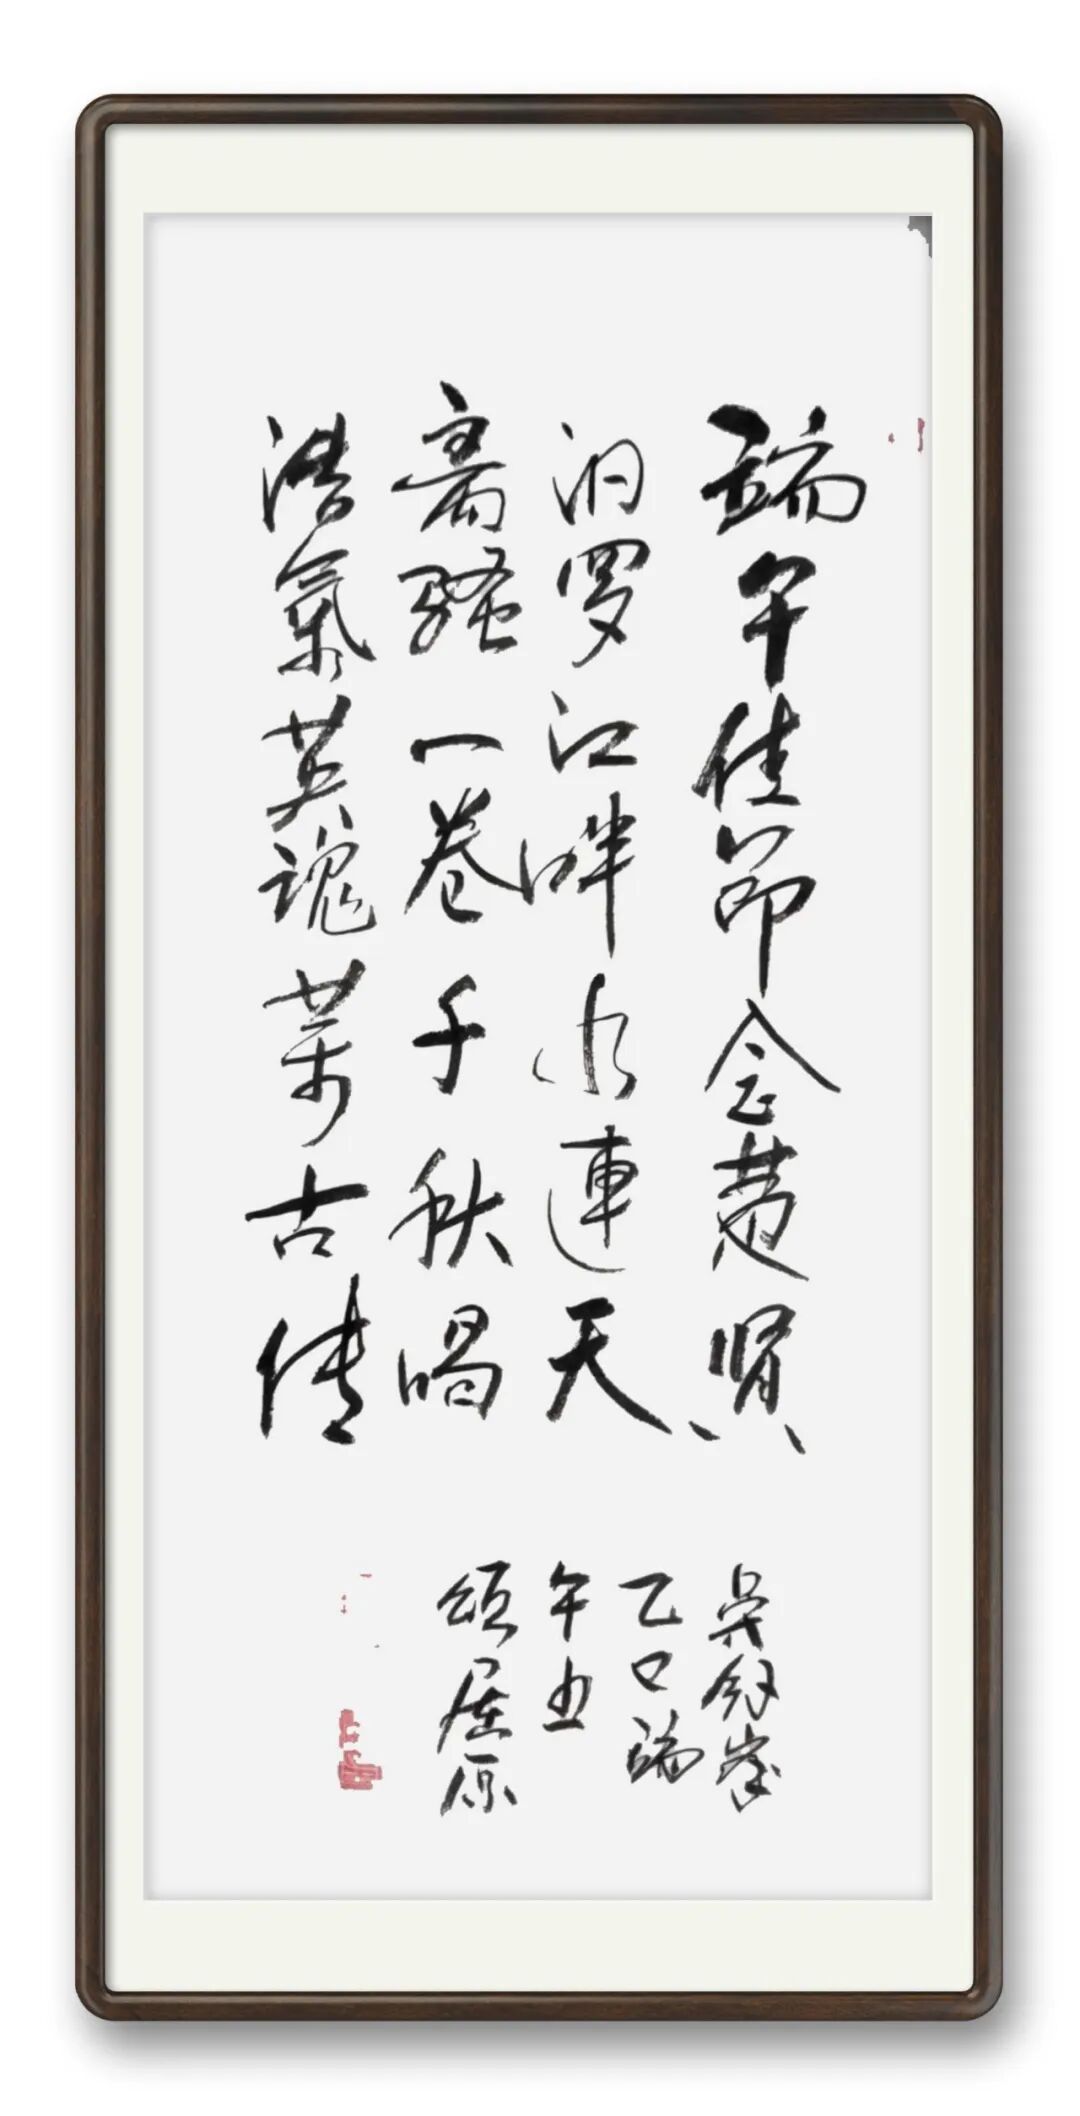 端午佳節念楚賢
汨罗江畔水連天
離騷一卷千秋唱
浩氣英魂萬古傳
吴峯
乙巳端
午书
颂屈原